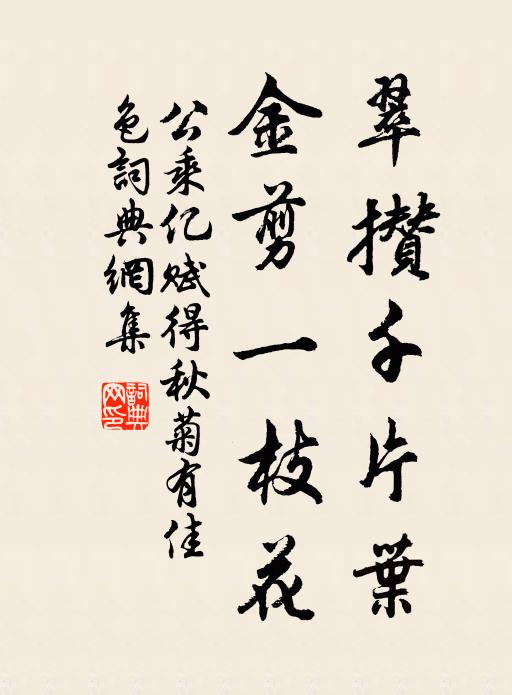 翠攢千片葉
金剪一枝花
公乘亿赋得秋菊有佳
色詞典網集
詞典
网印